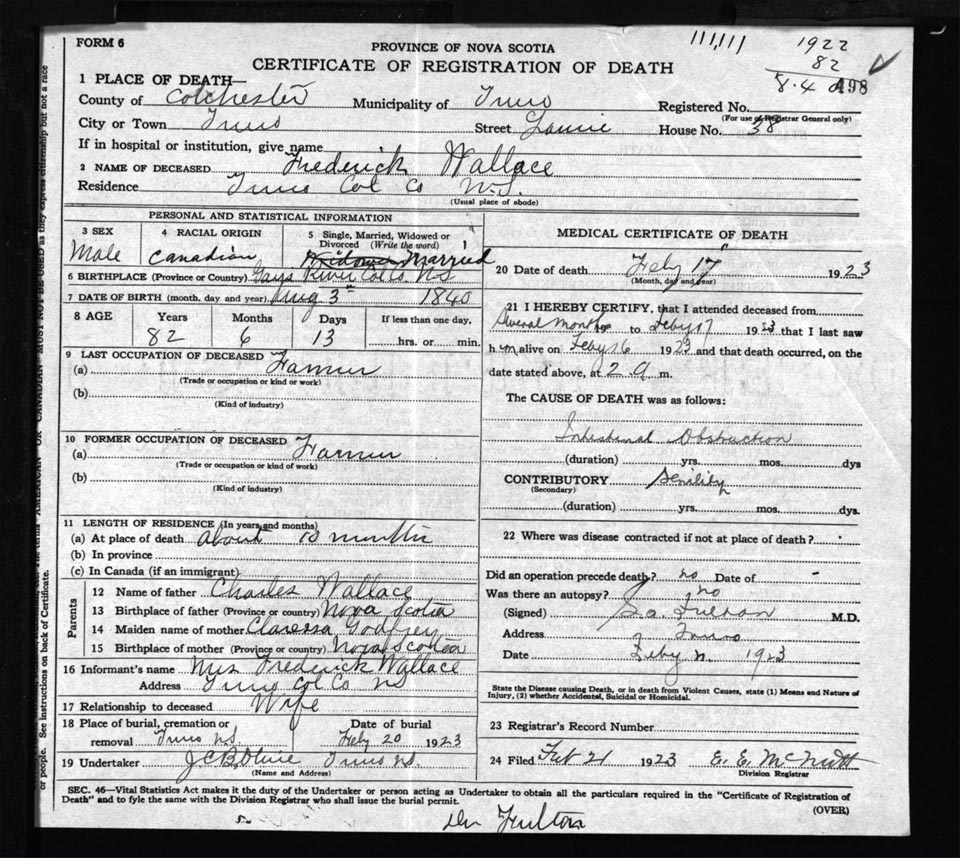 FORM 6
PROVINCE OF NOVA SCOTIA
CERTIFICATE OF REGISTRATION OF DEATH
1922
82
8.4
498
1 PLACE OF DEATH—
County of Colchester Municipality of Truro Registered No.
(For use of Registrar General only)
City or Town Truro Street House No. 38
If in hospital or institution, give name
2 NAME OF DECEASED Frederick Wallace
Residence Truro Col Co N.S.
(Usual place of abode)
PERSONAL AND STATISTICAL INFORMATION
3 SEX 4 RACIAL ORIGIN 5 Single, Married, Widowed or Divorced (Write the word)
Male Canadian Widower Married
6 BIRTHPLACE (Province or Country) Gays River Col Co N S
7 DATE OF BIRTH (month, day and year) Aug 3 1840
8 AGE Years Months Days If less than one day,
82 6 13 hrs. or min.
9 LAST OCCUPATION OF DECEASED
(a) Farmer
(Trade or occupation or kind or work)
(b)
(Kind of industry)
10 FORMER OCCUPATION OF DECEASED
(a) Farmer
(Trade or occupation or kind of work)
(b)
(Kind of industry)
11 LENGTH OF RESIDENCE (In years and months)
(a) At place of death about 10 months
(b) In province
(c) In Canada (if an immigrant)
Parents
12 Name of father Charles Wallace
13 Birthplace of father (Province or country) Nova Scotia
14 Maiden name of mother Claressa Godfrey
15 Birthplace of mother (Province or country) Nova Scotia
16 Informant's name Mrs Frederick Wallace
Address Truro Col Co NS
17 Relationship to deceased Wife
18 Place of burial, cremation or removal Truro N.S. Date of burial Feby 20 1923
19 Undertaker Truro N.S.
(Name and Address)
MEDICAL CERTIFICATE OF DEATH
20 Date of death Feby 17 1923
(Month, day and year)
21 I HEREBY CERTIFY, that I attended deceased from
Several Months to Feby 17 1923 that I last saw
him alive on Feby 16 1923 and that death occurred, on the
date stated above, at 2 a m.
The CAUSE OF DEATH was as follows:
Intestinal Obstruction
(duration) yrs. mos. dys
CONTRIBUTORY Senility
(Secondary)
(duration) yrs. mos. dys.
22 Where was disease contracted if not at place of death?
Did an operation precede death? no Date of -
Was there an autopsy? no
(Signed) M.D.
Address Truro
Date Feby 1923
State the Disease causing Death, or in death from Violent Causes, state (1) Means and Nature of
Injury, (2) whether Accidental, Suicidal or Homicidal.
23 Registrar's Record Number
24 Filed Feb 21 1923 E. E. McNutt
Division Registrar
SEC. 46—Vital Statistics Act makes it the duty of the Undertaker or person acting as Undertaker to obtain all the particulars required in the "Certificate of Registration of
Death" and to fyle the same with the Division Registrar who shall issue the burial permit.
(OVER)
Dr Fulton
or people. See instructions on back of Certificate.